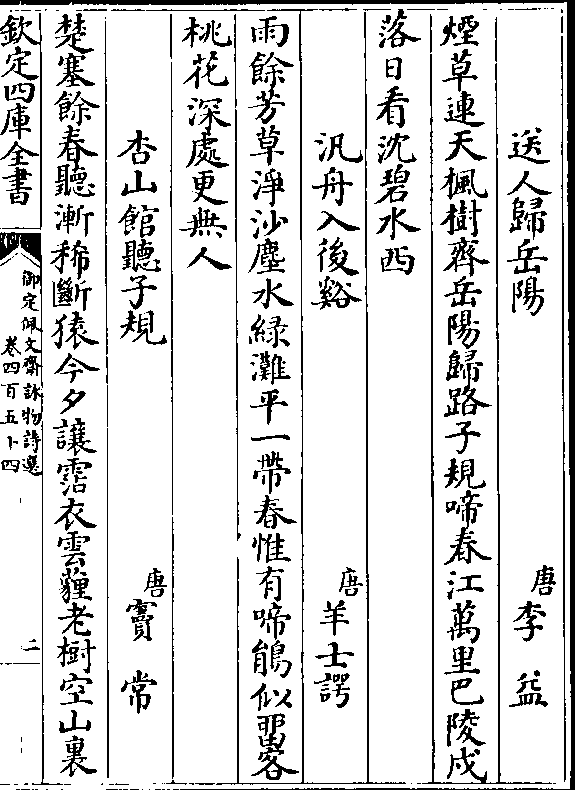 送人歸岳陽 唐李益
煙草連天楓樹齊岳陽歸路子規啼春江萬里巴陵戍
落日看沈碧水西
汎舟入後谿 唐羊士諤
雨餘芳草淨沙塵水緑灘平一帶春惟有啼鵑似留客
桃花深處更無人
杏山館聽子規 唐竇常
楚塞餘春聽漸稀斷猿今夕讓霑衣雲薶老樹空山裏
欽定四庫全書
御定佩文齋詠物詩選
卷四百五十四
二